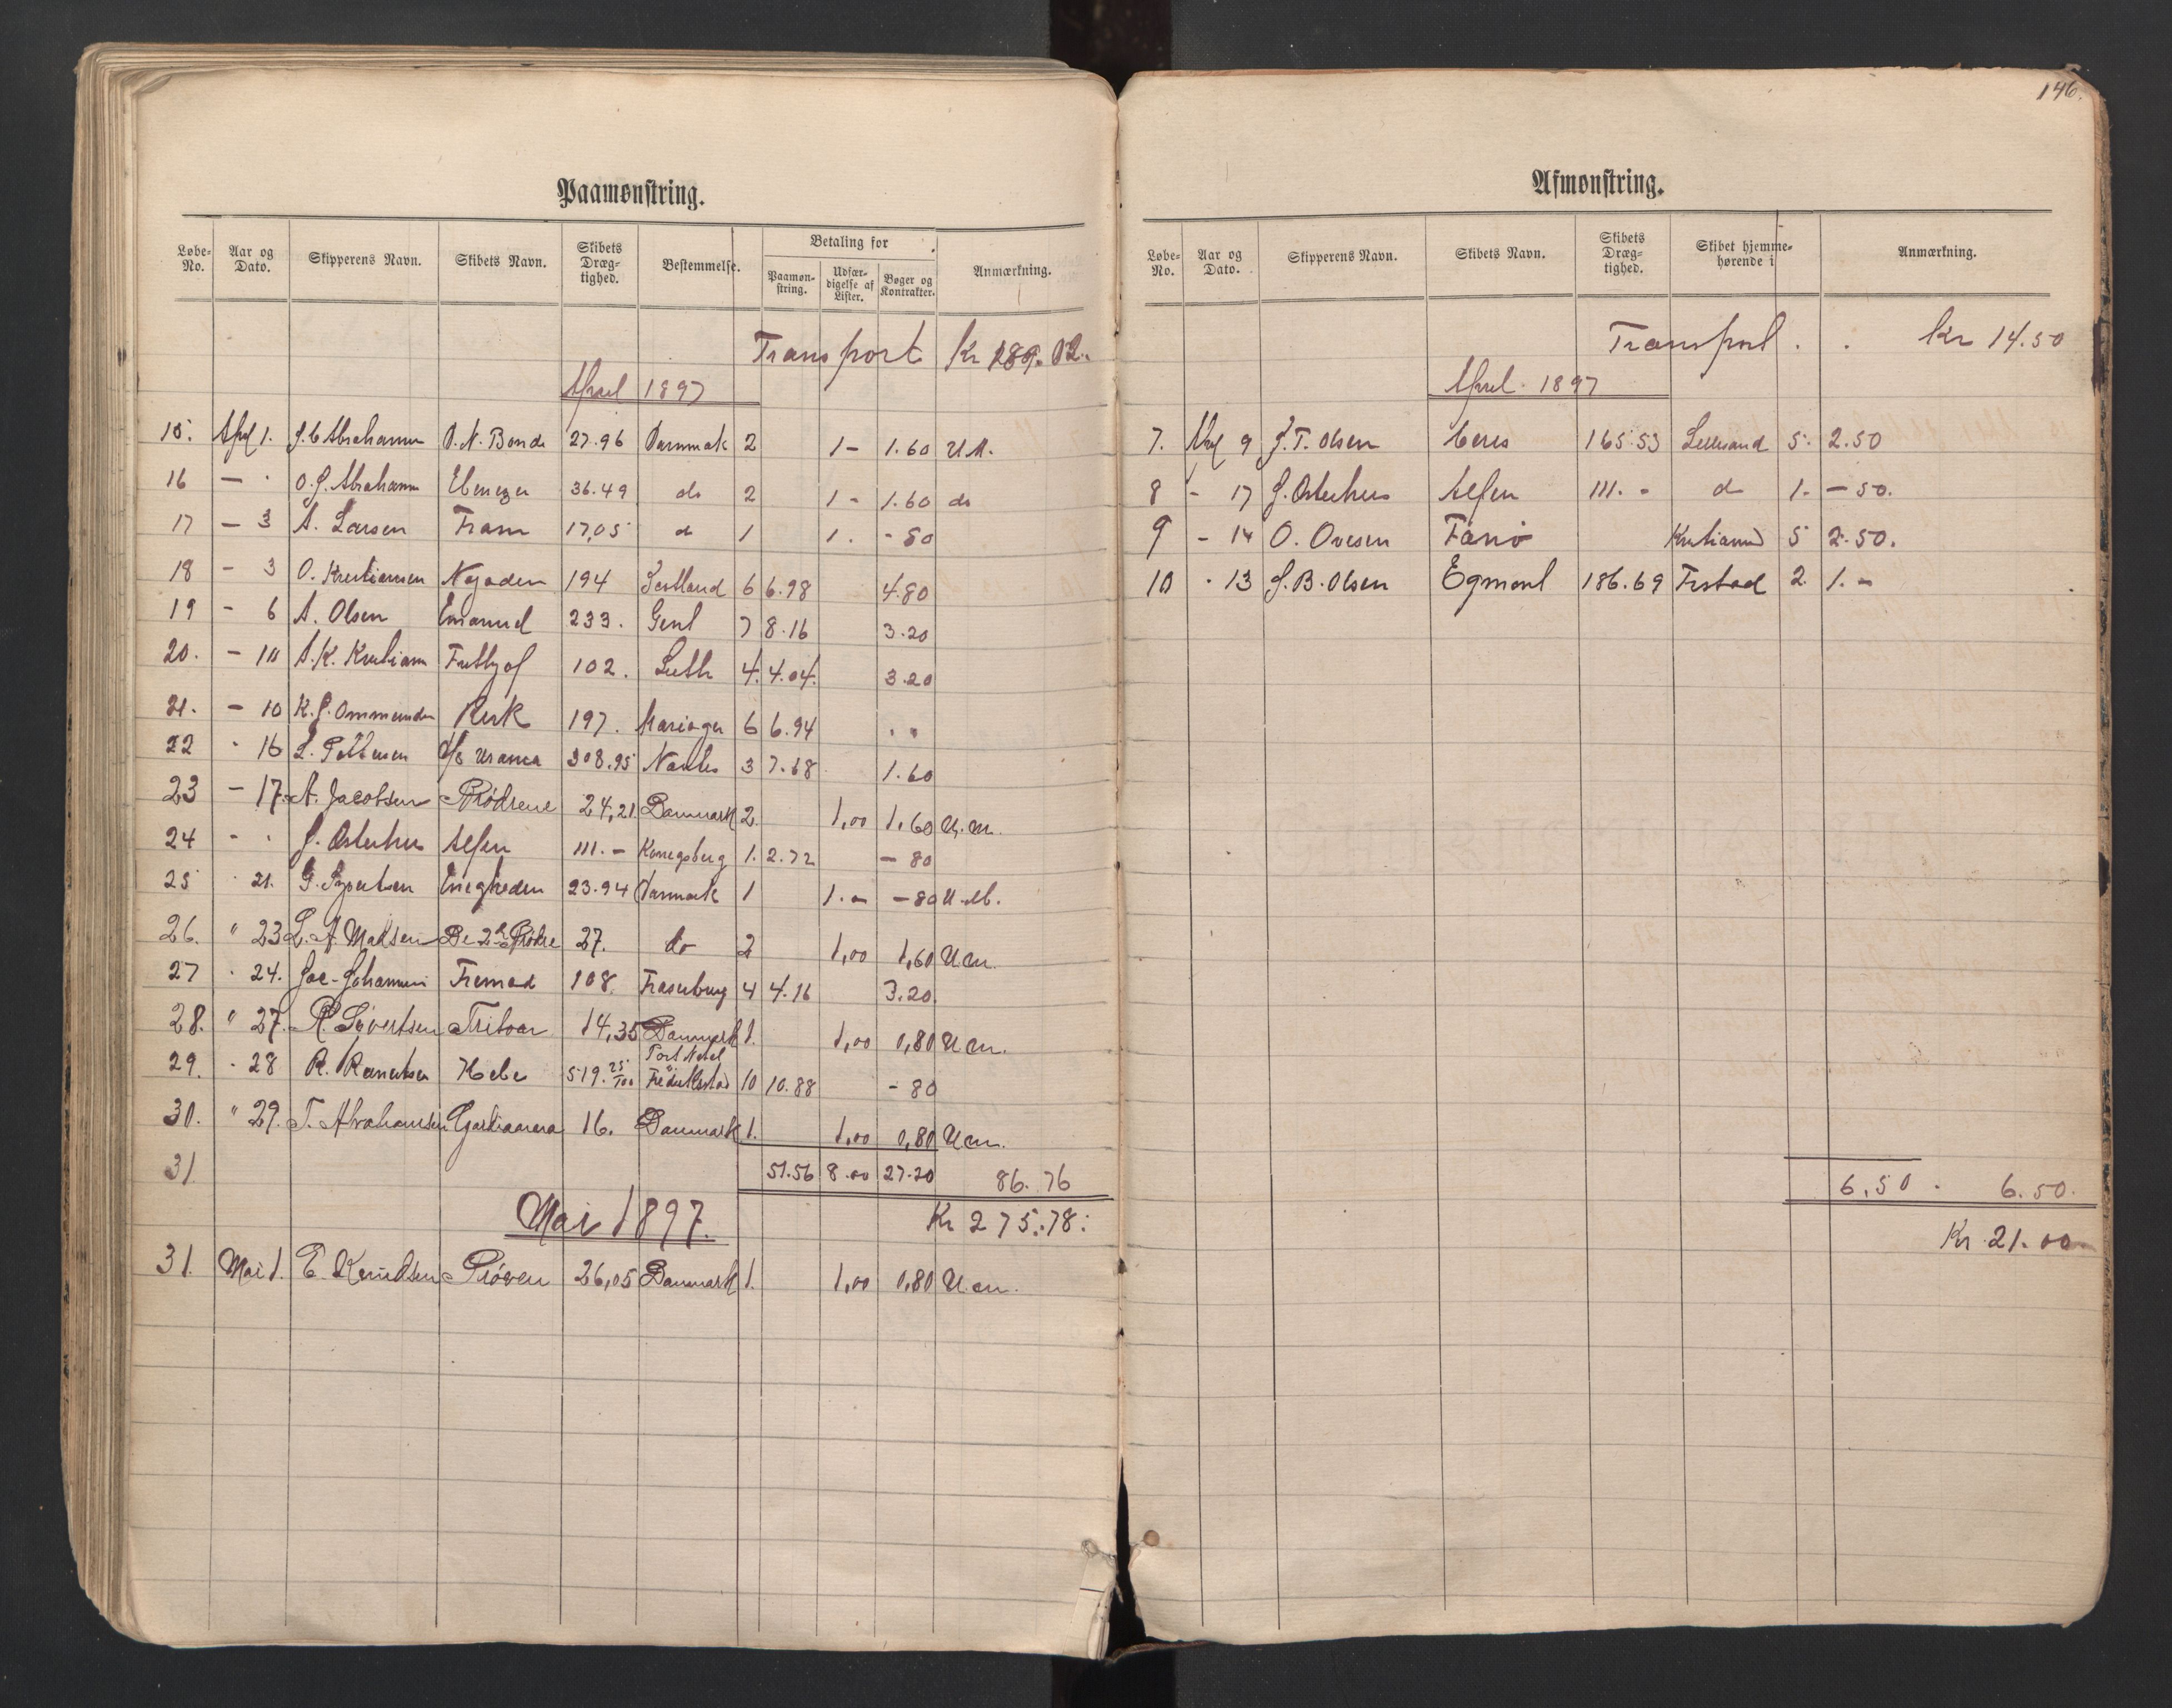 146.
Paamønstring.
Løbe-No. Aar og Dato. Skipperens Navn. Skibets Navn. Skibets Dræg-tighed. Bestemmelse. Betaling for Paamøn-string. Udfær-digelse af Lister. Bøger og Kontrakter. Anmærkning.
Transport Kr 189.02.
April 1897
15. Apl 1. J. C Abrahamsen O. N. Bonde 27.96 Danmark 2 1 - 1.60 U.M.
16 — " O. J. Abrahamsen Ebenezer 36.49 do 2 1 - 1.60 do
17 — 3 A. Larsen Fram 17,05 d 1 1. - 80
18 — 3 O. Kristiansen Najaden 194 6 6.98 4.80
19 - 6 A. Olsen Emanuel 233. Gent 7 8.16 3.20
20. - 10 A. K. Fritjof 102. Leith 4. 4.04. 3.20
21. - 10 K. J. Ommundsen Rusk 197. Mariager 6 6.94 " "
22 " 16 L. Pettersen Urania 308.95 Nantes 3 7.68 1.60
23 — 17. A. Jacobsen Brødrene 24,21 Danmark 2. 1,00 1,60 U.m.
24 - " J. Osterhus Alfen 111. — Konigsberg 1. 2.72 — 80
25 " 21. G. Enigheden 23.94 Danmark 1 1. - — 80 U.M.
26. " 23 L. A. Madsen De 2de Brødre 27. do 2 1,00 1,60 Um.
27 " 24. Jac. Johannsen Fremad 108. Fraserburg 4 4.16 3.20.
28. " 27. R. Sivertsen Tritoar 14,35 Danmark 1. 1,00 0,80 Um.
29. " 28 R. Hebe 519. 25/100 Port Natal Fredrikstad 10 10.88 - 80
30. " 29. T. Abrahamsen 16. Danmark 1. 1,00 0,80 Um.
31 51.56 8.00 27.20 86.76
Mai 1897. Kr 275.78.
31. Mai 1. E. Knudsen Prøven 26,05 Danmark 1. 1,00 0,80 U.m.
Afmønstring.
Løbe-No. Aar og Dato. Skipperens Navn. Skibets Navn. Skibets Dræg-tighed. Skibet hjemme-hørende i Anmærkning.
Transport . . Kr 14.50
April 1897
7. Apl 9 J. T. Olsen Ceres 165.53 Lillesand 5. 2.50
8 - 17 J. Osterhus Alfen 111. - d 1. — 50.
9 - 14 O. Ovesen Fanø Kristiansund 5 2.50.
10 " 13 J. B. Olsen Egmont 186.69 2 1. -
6,50 . 6.50.
Kr 21.00